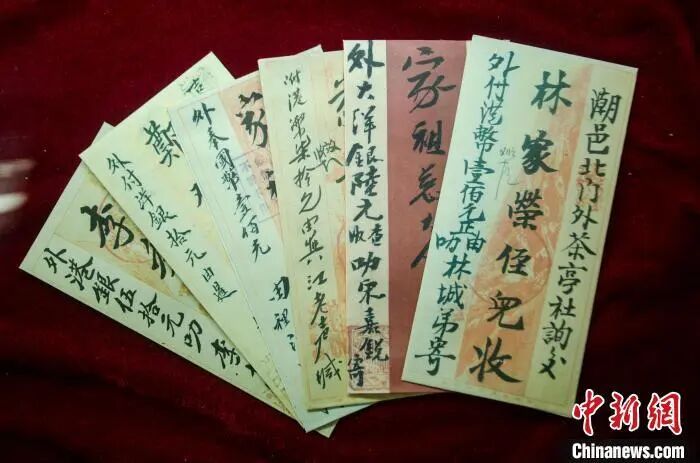 潮邑北門外茶亭社詢交
林家榮侄兒收
外付港幣壹佰元正由叻林城弟寄
家祖慈大人
外大洋銀陸元查收叻宋嘉銳寄
附港幣柒拾元由
國幣壹佰元
吉
鄭
外付洋銀拾元由暹
李
外港銀伍拾元叻李
中新网
Chinanews.com